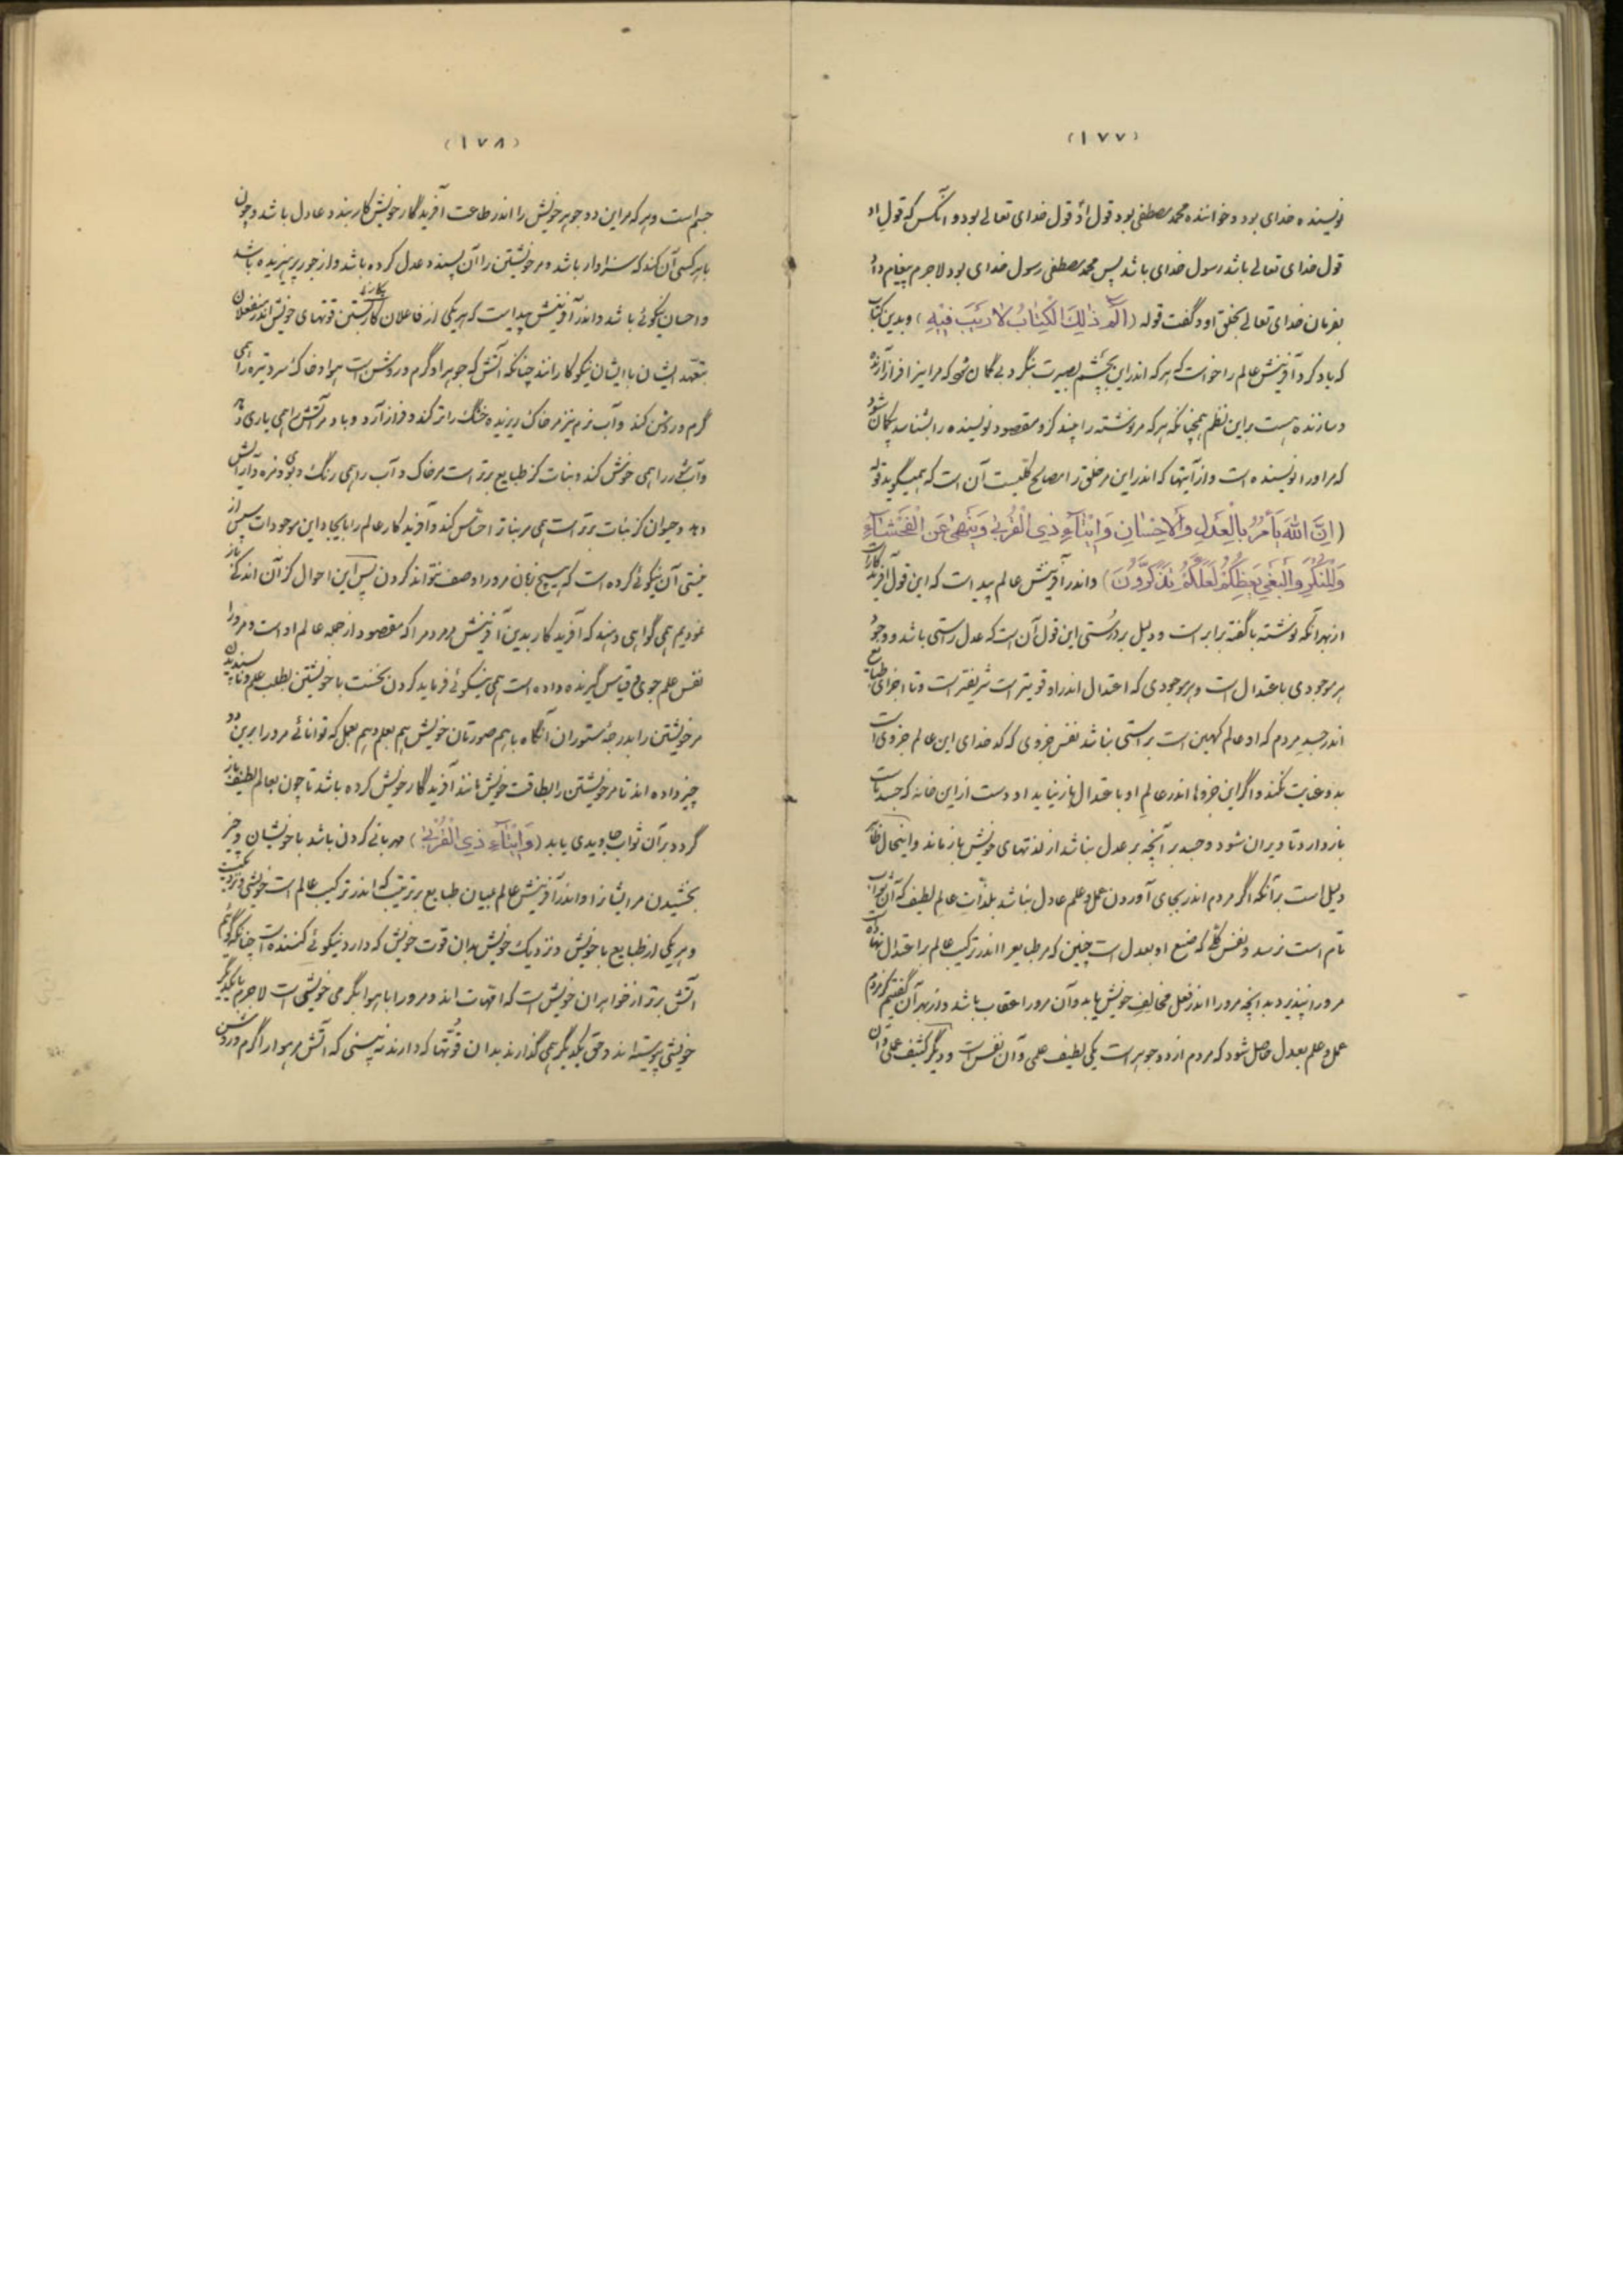 (۱۷۷)
نویسنده خدای بود و خواننده محمد مصطفی بود قول او قول خدای تعالی بود و آنکس که قول او
قول خدای تعالی باشد رسول خدای باشد پس محمد مصطفی رسول خدای بود لاجرم پیغام داد
بفرمان خدای تعالی بخلق او و گفت قوله (الم ذلِكَ الْكِتابُ لا رَيْبَ فيهِ) و بدین کتاب
که یاد کرد آفرینش عالم را خواست که هر که اندر این بچشم بصیرت بنگرد بی گمان شود که مر اینرا فراز آرنده
و سازنده هست براین نظم همچنانکه هر که مر نوشته را ببیند کزو مقصود نویسنده را بشناسد بی گمان شود
که مر او را نویسنده است و از آیتها که اندر این مر خلق را مصالح کلیست آن است که همیگوید قوله
(اِنَّ اللّهَ يَأْمُرُ بِالْعَدْلِ وَالْاِحْسانِ وَ ايتآءِ ذِي الْقُرْبى وَيَنْهى عَنِ الْفَحْشآءِ
وَالْمُنْكَرِ وَالْبَغْيِ يَعِظُكُمْ لَعَلَّكُمْ تَذَكَّرُونَ) و اندر آفرینش عالم پیداست که این قول آفریدگار است
از بهر آنکه نوشته با گفته برابر است و دلیل بر درستی این قول آن است که عدل راستی باشد و وجود
هر موجودی باعتدال است و هر موجودی که اعتدال اندر او قویتر است شریفتر است و تا اجزای طبایع
اندر جسد مردم که او عالم کهین است براستی نباشد نفس جزوی که کدخدای این عالم جزوی است
بدو عنایت نکند و اگر این جزوها اندر عالم او باعتدال باز نیاید او دست از این خانه که جسد است
باز دارد تا ویران شود و جسد بر آنچه بر عدل نباشد از لذتهای خویش باز ماند و اینحال ظاهر
دلیل است بر آنکه اگر مردم اندر بجای آوردن عمل و علم عادل نباشد بلذّات عالم لطیف که آن ثواب
تام است نرسد و نفس کلّی که صنع او بعدل است چنین که مر طبایع را اندر ترکیب عالم بر اعتدال نهاده است
مرورا نپذیرد بدانچه مرورا اندر فعل مخالف خویش یابد و آن مرورا عقاب باشد و از بهر آن گفتیم کز مردم
عمل و علم بعدل حاصل شود که مردم از دو جوهر است یکی لطیف علمی و آن نفس است و دیگر کثیف عملی و آن
(۱۷۸)
جسم است و هر که مر این دو جوهر خویش را اندر طاعت آفریدگار خویش کار بندد عادل باشد و چون
با هر کسی آن کند که سزاوار باشد و مر خویشتن را آن پسندد عدل کرده باشد و از جور پرهیزیده باشد
و احسان نیکوئی باشد و اندر آفرینش پیداست که هر یکی از فاعلان بکار بستن قوتهای خویش اندر منفعلان
بتعهد ایشان با ایشان نیکو کارانند چنانکه آتش که جوهر او گرم و روشن است هوا و خاک سرد و تیره را همی
گرم و روشن کند و آب نرم نیز مر خاک ریزیده خشک را تر کند و فراز آرد و باد مر آتش را همی یاری دهد
و آب شور را همی خوش کند و نبات کز طبایع برتر است مر خاک و آب را همی رنگ و بوی و مزه و آرایش
دهد و حیوان کز نبات برتر است همی مر نبات را حسّاس کند و آفریدگار عالم را بایجاد این موجودات پس از
نیستی آن نیکوئی کرده است که هیچ زبان مرورا وصف نتواند کردن پس این احوال کز آن اندکی باز
نمودیم همی گواهی دهند که آفریدگار بدین آفرینش مر مردم را که مقصود از جمله عالم او است و مرورا
نفس علم جوی و قیاس گیرنده داده است همی نیکوئی فرماید کردن نخست با خویشتن بطلب علم و ناپسندیدن
مر خویشتن را بدرجهٔ ستوران آنگاه با هم صورتان خویش هم بعلم و هم بعمل که توانائی مرورا برین دو
چیز داده اند تا مر خویشتن را بطاقت خویش مانند آفریدگار خویش کرده باشد تا چون بعالم لطیف باز
گردد بر آن ثواب جاویدی یابد (وَ ايتآءِ ذِي الْقُرْبى) مهربانی کردن باشد با خویشان و چیز
بخشیدن مر ایشانرا و اندر آفرینش عالم میان طبایع بر ترتیب که اندر ترکیب عالم است خویشی و نزدیکیست
و هر یکی از طبایع با خویش و نزدیک خویش بدان قوت خویش که دارد نیکوئی کننده است چنانکه گوئیم
آتش برتر از خواهران خویش است که امّهات اند و مرورا با هوا بگرمی خویشی است لاجرم با یکدیگر
خویشی پیوسته اند و حق یکدیگر همی گذارند بدان قوّتها که دارند نه بینی که آتش مر هوا را گرم و روشن